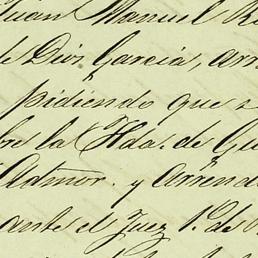 Juan Manuel R
de Dios Garcia, arr
pidiendo que s
bre la Hda. de Gu
Admor. y Arrend
ante el Juez 1º. de